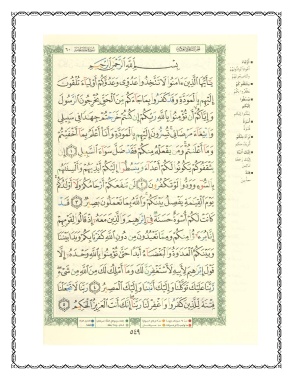 بِسْمِ اللَّهِ الرَّحْمَٰنِ الرَّحِيمِ
يَا أَيُّهَا الَّذِينَ ءَامَنُوا لَا تَتَّخِذُوا عَدُوِّى وَعَدُوَّكُمْ أَوْلِيَاءَ تُلْقُونَ
إِلَيْهِم بِالْمَوَدَّةِ وَقَدْ كَفَرُوا بِمَا جَاءَكُم مِّنَ الْحَقِّ يُخْرِجُونَ الرَّسُولَ
وَإِيَّاكُمْ أَن تُؤْمِنُوا بِاللَّهِ رَبِّكُمْ إِن كُنتُمْ خَرَجْتُمْ جِهَادًا فِى سَبِيلِى
وَابْتِغَاءَ مَرْضَاتِى تُسِرُّونَ إِلَيْهِم بِالْمَوَدَّةِ وَأَنَا أَعْلَمُ بِمَا أَخْفَيْتُمْ
وَمَا أَعْلَنتُمْ وَمَن يَفْعَلْهُ مِنكُمْ فَقَدْ ضَلَّ سَوَاءَ السَّبِيلِ ١ إِن
يَثْقَفُوكُمْ يَكُونُوا لَكُمْ أَعْدَاءً وَيَبْسُطُوا إِلَيْكُمْ أَيْدِيَهُمْ وَأَلْسِنَتَهُم
بِالسُّوءِ وَوَدُّوا لَوْ تَكْفُرُونَ ٢ لَن تَنفَعَكُمْ أَرْحَامُكُمْ وَلَا أَوْلَادُكُمْ
يَوْمَ الْقِيَامَةِ يَفْصِلُ بَيْنَكُمْ وَاللَّهُ بِمَا تَعْمَلُونَ بَصِيرٌ ٣ قَدْ
كَانَتْ لَكُمْ أُسْوَةٌ حَسَنَةٌ فِى إِبْرَاهِيمَ وَالَّذِينَ مَعَهُ إِذْ قَالُوا لِقَوْمِهِمْ
إِنَّا بُرَءَاؤُا مِنكُمْ وَمِمَّا تَعْبُدُونَ مِن دُونِ اللَّهِ كَفَرْنَا بِكُمْ وَبَدَا بَيْنَنَا
وَبَيْنَكُمُ الْعَدَاوَةُ وَالْبَغْضَاءُ أَبَدًا حَتَّى تُؤْمِنُوا بِاللَّهِ وَحْدَهُ إِلَّا
قَوْلَ إِبْرَاهِيمَ لِأَبِيهِ لَأَسْتَغْفِرَنَّ لَكَ وَمَا أَمْلِكُ لَكَ مِنَ اللَّهِ مِن شَىْءٍ
رَّبَّنَا عَلَيْكَ تَوَكَّلْنَا وَإِلَيْكَ أَنَبْنَا وَإِلَيْكَ الْمَصِيرُ ٤ رَبَّنَا لَا تَجْعَلْنَا
فِتْنَةً لِّلَّذِينَ كَفَرُوا وَاغْفِرْ لَنَا رَبَّنَا إِنَّكَ أَنتَ الْعَزِيزُ الْحَكِيمُ ٥
٥٤٩